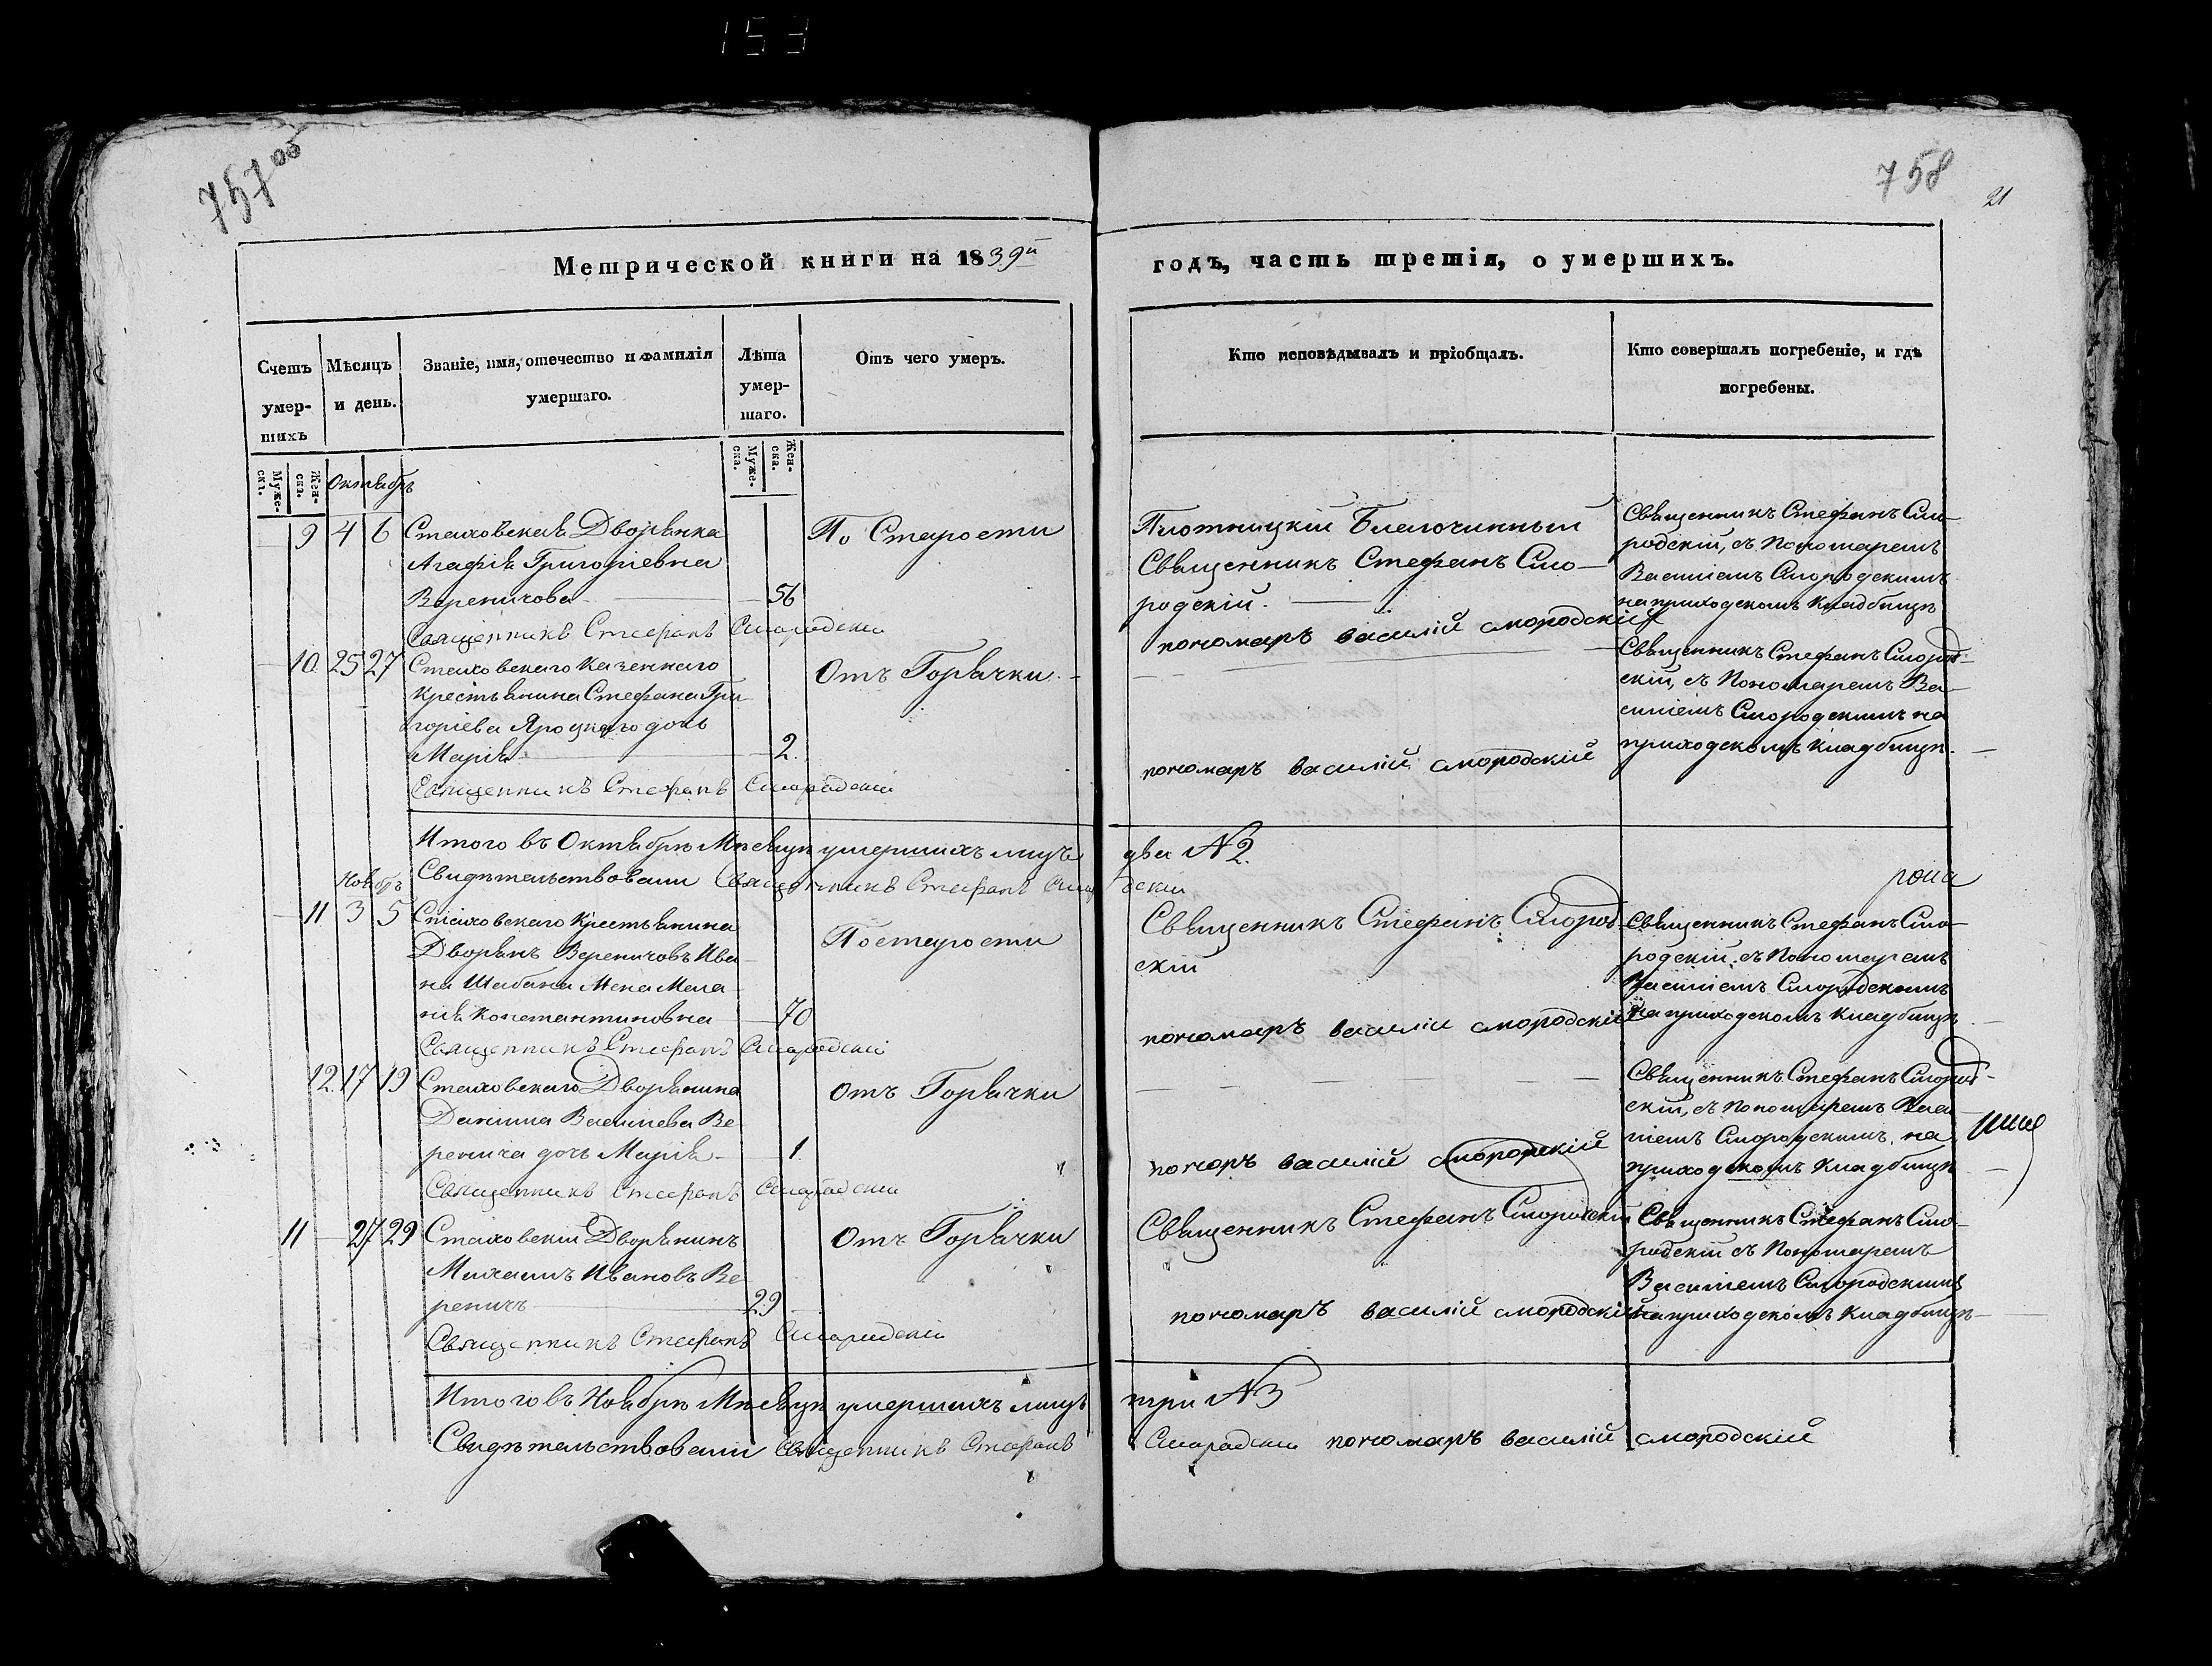 153
757 об
758
21
Метрической книги на 1839й
годъ, часть третія, о умершихъ.
Счетъ умер-шихъ
Мѣсяцъ и день.
Званіе, имя, отечество и фамилія
умершаго.
Лѣта умер-шаго.
Отъ чего умеръ.
Кто исповѣдывалъ и пріобщалъ.
Кто совершалъ погребеніе, и гдѣ
погребены.
Муже-скъ.
Жен-скъ.
Муже-ска.
Жен-ска.
Октябрь
9 4 6 Стаховская Дворянка
Агафія Григоріевна
Вереничова 56
По Старости
Плотницкій Благочинный
Священникъ Стефанъ Смо-
родскій.
Священникъ Стефанъ Смо-
родскій, съ Пономаремъ
Василіемъ Смородскимъ
на приходскомъ кладбищѣ
Священникъ Стефанъ Смородскій
пономаръ василій смородскій
10 25 27 Стаховскаго казеннаго
крестьянина Стефана Гри-
горіева Яроцкаго дочь
Марія 2.
Отъ Горячки.
Священникъ Стефанъ Смород-
скій, съ Пономаремъ Ва-
силіемъ Смородскимъ на
приходскомъ кладбищѣ.
Священникъ Стефанъ Смородскій
пономаръ василій смородскій
Итого въ Октябрѣ Мѣсяцѣ умершихъ лицъ два №2.
Свидѣтельствовали Священникъ Стефанъ Смородскій
Ноябрь
11 3 5 Стаховскаго Крестьянина
Дворянъ Вереничовъ Ива-
на Шабана Жена Мела-
нія Константиновна 70
По старости
Священникъ Стефанъ Смород-
скій
Священникъ Стефанъ Смо-
родскій, съ Пономаремъ
Василіемъ Смородскимъ
на приходскомъ кладбищѣ
Священникъ Стефанъ Смородскій
пономаръ василій смородскій
12. 17 19 Стаховскаго Дворянина
Даніила Василіева Ве-
ренича дочь Марія 1.
Отъ Горячки
Священникъ Стефанъ Смород-
скій, съ Пономаремъ Васи-
ліемъ Смородскимъ, на
приходскомъ кладбищѣ
Священникъ Стефанъ Смородскій
поноръ василій смородскій
11 27 29 Стаховскій Дворянинъ
Михаилъ Ивановъ Ве-
реничъ 29
Отъ Горячки
Священникъ Стефанъ Смородскій
Священникъ Стефанъ Смо-
родскій съ Пономаремъ
Василіемъ Смородскимъ
на приходскомъ кладбищѣ
Священникъ Стефанъ Смородскій
пономаръ василій смородскій
Итого въ Ноябрѣ Мѣсяцѣ умершихъ лицъ три №3
Свидѣтельствовали Священникъ Стефанъ Смородскій пономаръ василій смородскій